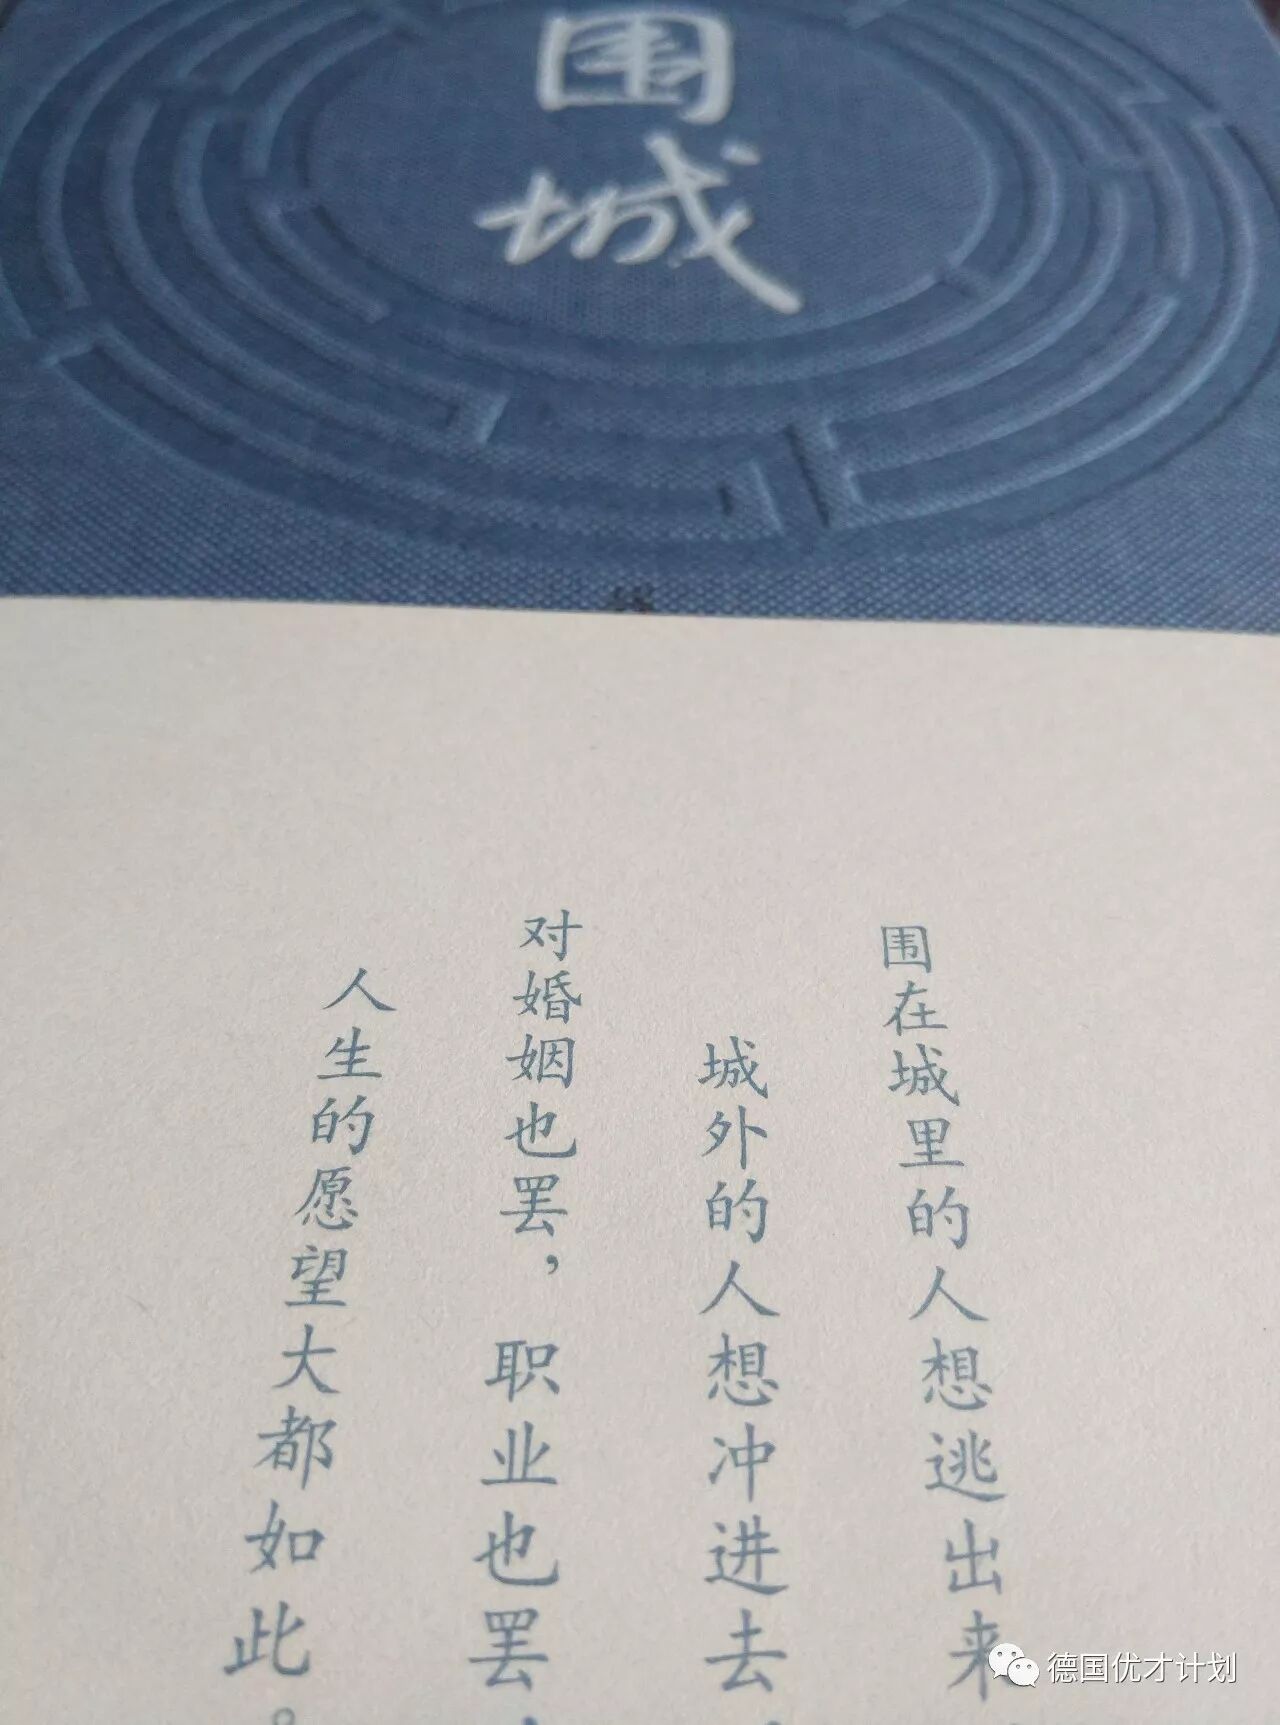 围城
围在城里的人想逃出来
城外的人想冲进去，
对婚姻也罢，职业也罢，
人生的愿望大都如此。
德国优才计划